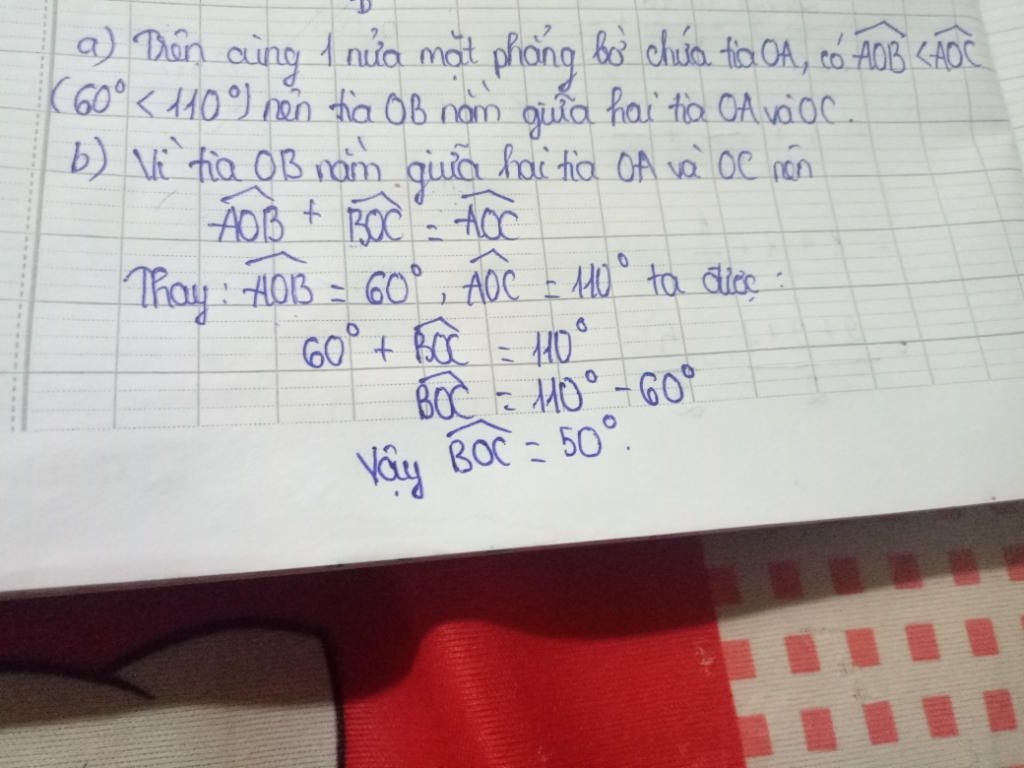 a) Trên cùng 1 nửa mặt phẳng bờ chứa tia OA, có \widehat{AOB} < \widehat{AOC}
(60° < 110°) nên tia OB nằm giữa hai tia OA và OC.
b) Vì tia OB nằm giữa hai tia OA và OC nên
\widehat{AOB} + \widehat{BOC} = \widehat{AOC}
Thay: \widehat{AOB} = 60°, \widehat{AOC} = 110° ta được:
60° + \widehat{BOC} = 110°
\widehat{BOC} = 110° - 60°
Vậy \widehat{BOC} = 50°.